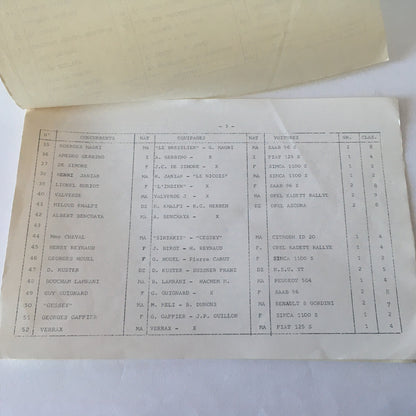 - 3 -
N° CONCURRENTS NAT EQUIPAGES NAT VOITURES GR. CLAS.
35 GEORGES MAGNI MA "LE BRESILIEN" - G. MAGNI MA SAAB 96 S 2 8
36 AMEDEO GERRINO I A. GERRINO - X I FIAT 125 S 1 4
37 DE SIMORE F J.C. DE SIMORE - X F SIMCA 1100 S 1
38 HENRI JANIAN MA H. JANIAN - "LE NICOIS" MA SIMCA 1100 S 1
39 LIONEL F - X F SAAB 96 S 2 8
40 VALVERDE MA VALVERDE J - X MA OPEL KADETT RALLYE 2 8
41 MILOUD KHALFI DZ M. KHALFI - DZ OPEL ASCONA 2
42 ALBERT BENCHAYA MA A. BENCHAYA - X MA
43
44 Mme CHEVAL MA - MA CITROEN ID 20 1 4
45 HENRY REYNAUD F J. - H. REYNAUD F O. KADETT RALLYE 1
46 GEORGES HOUEL F G. HOUEL - Pierre F SIMCA 1100 S 1
47 D. KUSTER DZ D. KUSTER - DZ N.S.U. TT 2
48 BOUCHAM LAMRANI MA B. LAMRANI - MA PEUGEOT 504 1 4
49 GUY GUIGNARD F G. GUIGNARD - X F SAAB 96 2 8
50 "GESSEY" MA M. MELI - B. MA RENAULT 8 GORDINI 2 7
51 GEORGES GAFFIER F G. GAFFIER - J.P. GUILLON F SIMCA 1100 S 1
52 VERRAX MA VERRAX - X MA FIAT 125 S 1 4